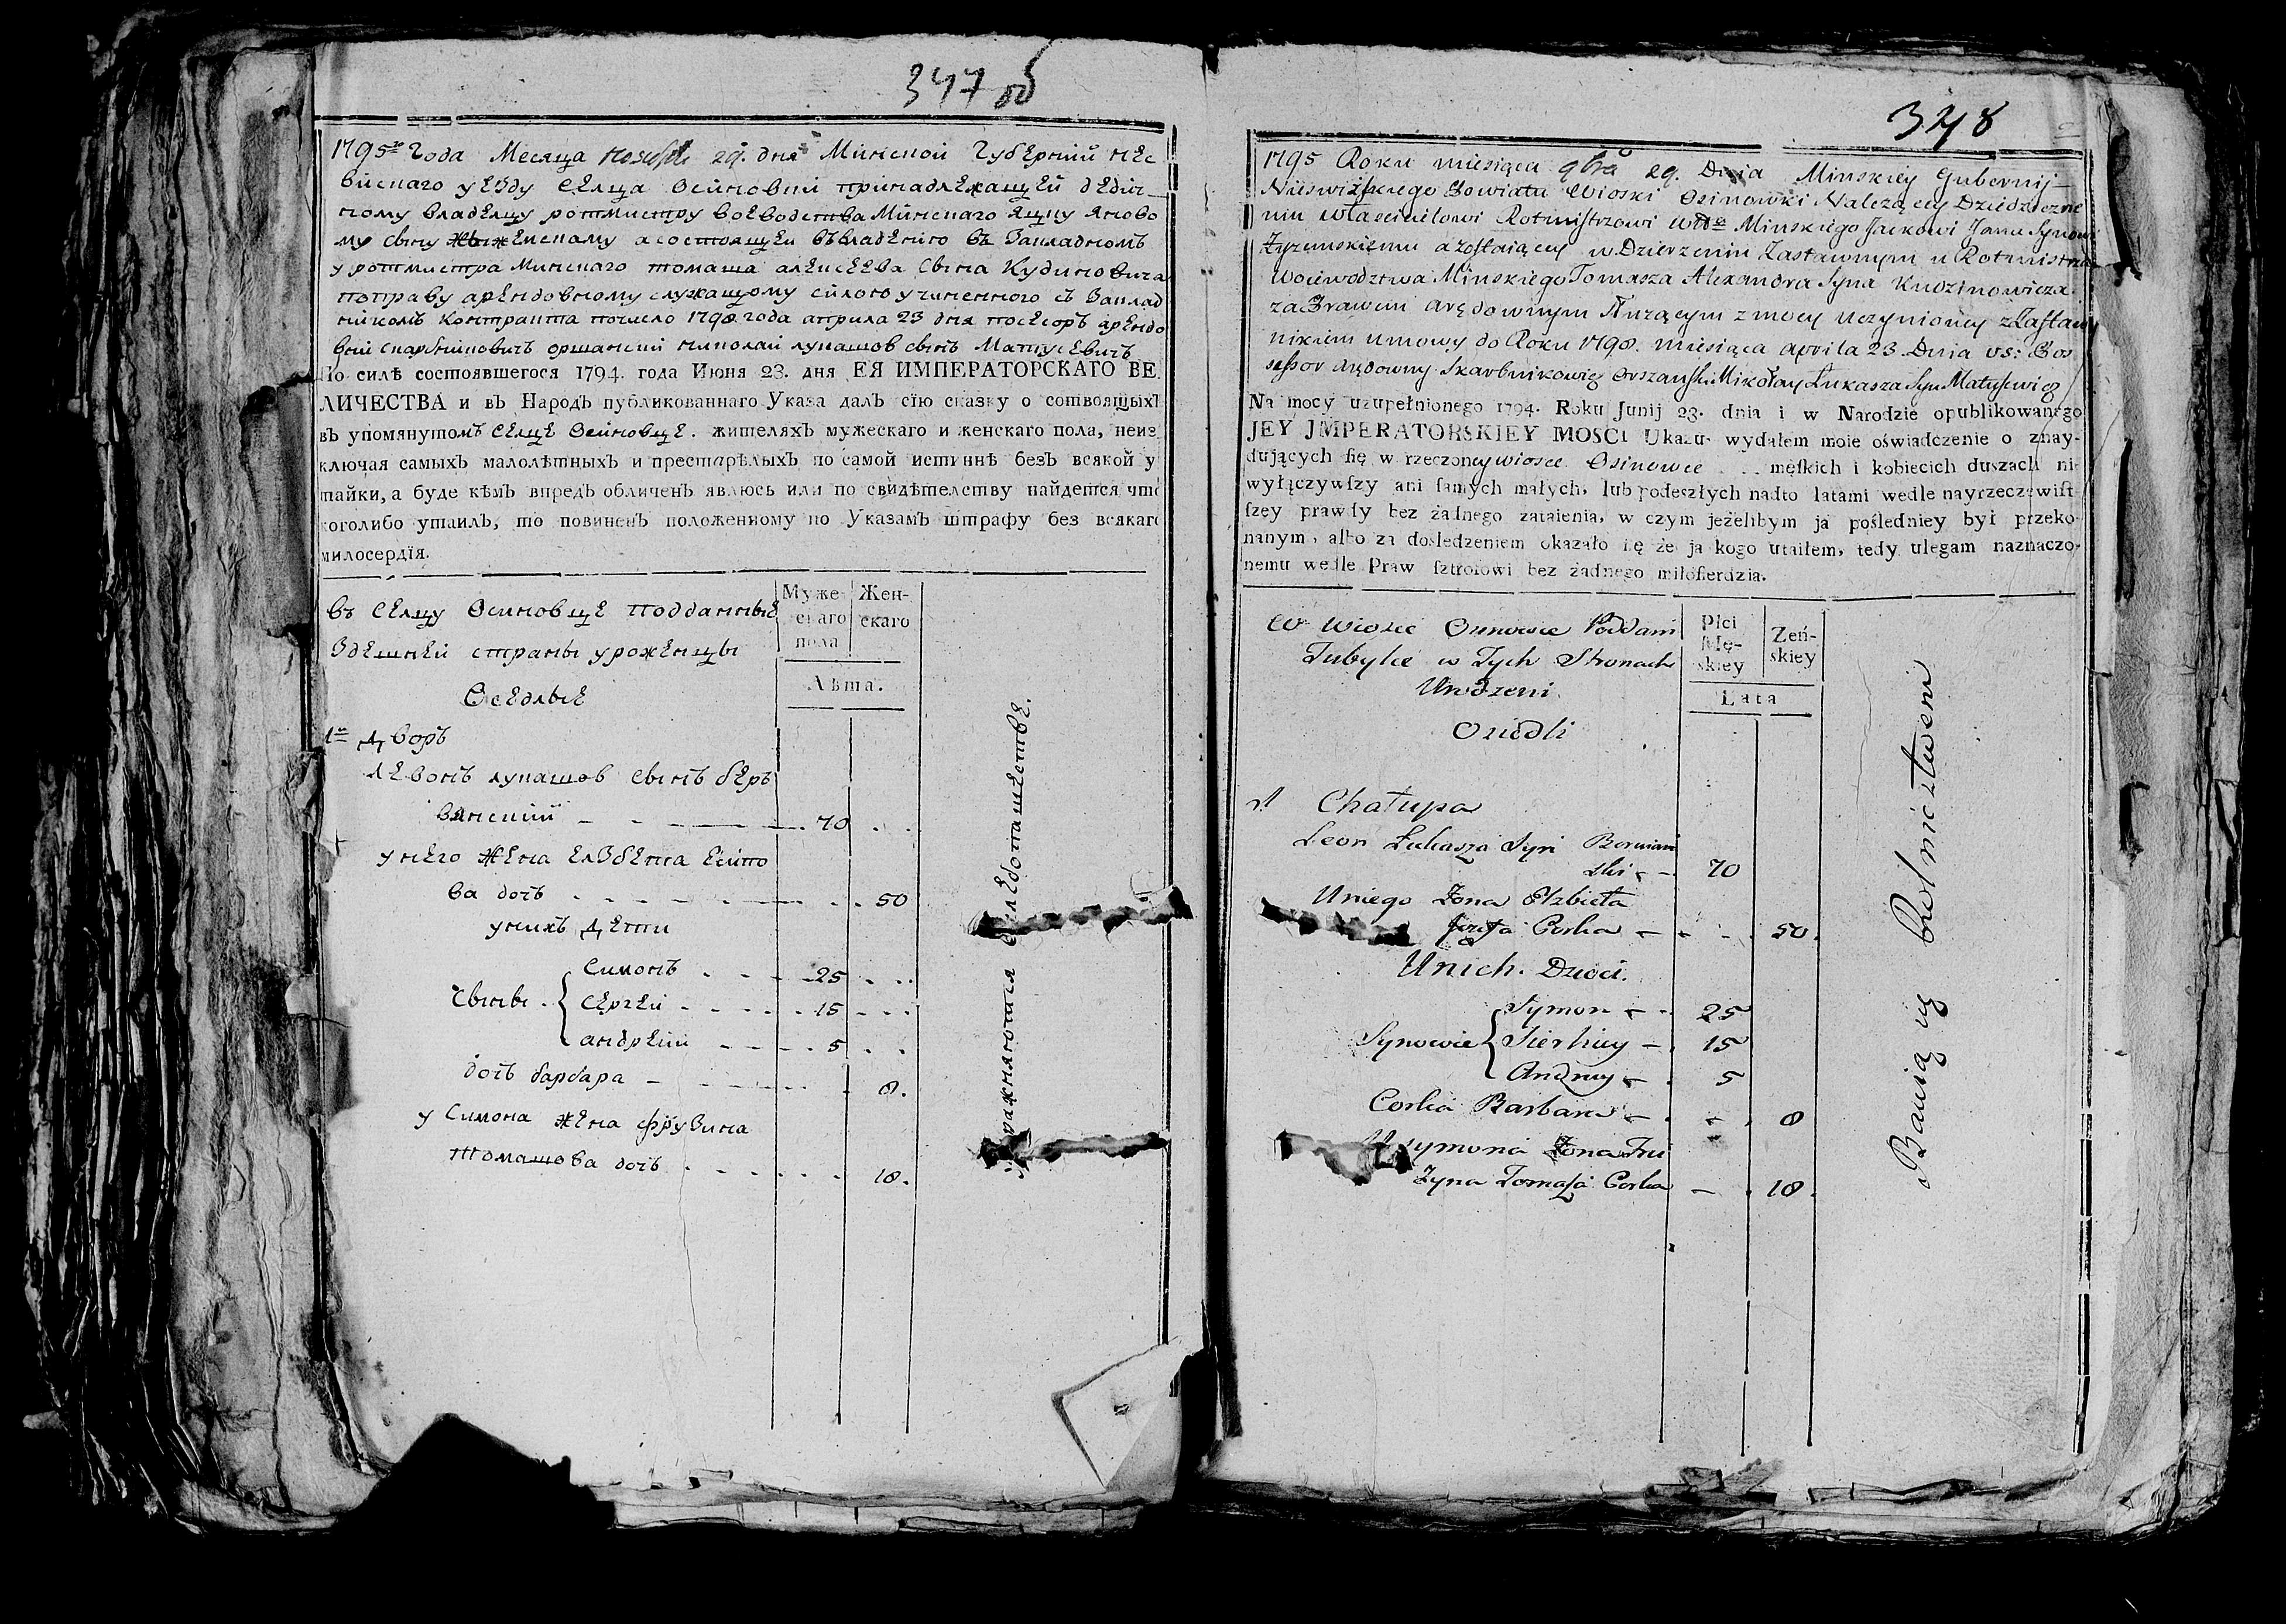 347 об
1795го Года Месяца ноября 29. дня Минской Губернии нес
вискаго уезду селца Осиновки принадлежащей дедич
ному владелцу ротмистру воеводства Минскаго Яцку Яново
му сыну а состоящей въ владению въ Закладномъ
у ротмистра Минскаго томаша алексеева сына Кудиновича
поправу арендовному служащому силою учиненного съ Заклад
никомъ контракта почисло 1798 года априла 23 дня посесоръ арендо
вный скарбниковичъ оршанский николай лукашов сынъ Матусевичъ
По силѣ состоявшегося 1794. года Июня 23. дня ЕЯ ИМПЕРАТОРСКАГО ВЕ
ЛИЧЕСТВА и въ Народъ публикованнаго Указа далъ сїю сказку о состоящыхъ
въ упомянутомъ селце Осиновце. жителяхъ мужескаго и женскаго пола, неиз
ключая самыхъ малолѣтныхъ и престарѣлыхъ по самой истиннѣ безъ всякой у
тайки, а буде кѣмъ впредь обличенъ явлюсь или по свидѣтелству найдется что
коголибо утаилъ, то повиненъ положенному по Указамъ штрафу без всякаго
милосердїя.
Муже- Жен-
скаго скаго
пола
Лѣта.
въ селцу Осиновце подданные
Здешней страны уроженцы
Оседлые
1й Дворъ
левонъ лукашов сынъ бер
вянский 70
у него жена елзбета
ва дочь 50
у нихъ Дети
Симонъ 25
сыны сергеи 15
андреий 5
дочь барбара 8.
у Симона жена фрузина
томашова дочь 18.
348
1795 Roku miesiąca 9bra 29. Dnia Minskiey Gubernij
Nieswizskiego Powiatu Wioski Osinowki Nalezącey Dziedziczne
mu Włascicielowi Rotmistrzowi Wdta Minskiego Jackowi Jana Synowi
a zostaiącey w Dzierzeniu Zastawnym u Rotmistrza
Woiewodztwa Minskiego Tomasza Alexandra Syna Kudzinowicza
za Prawem Arędownym Słuzącym z mocy uczynioney z Zastaw
nikiem umowy do Roku 1798. miesiąca aprila 23 Dnia vs: Pos
sessor Arędowny Skarbnikowicz Orszanski Mikołay Łukasza Syn Matusewicz
Na mocy uzupełnionego 1794. Roku Junij 23. dnia i w Narodzie opublikowanego
JEY JMPERATORSKIEY MOSCI Ukazu wydałem moie oświadczenie o znay-
dujących ſię w rzeczoney wiosce Osinowce męſkich i kobiecich duszach ni-
wyłączywſzy ani ſamych małych, lub podeszłych nadto latami wedle nayrzeczywiſt-
ſzey prawdy bez żadnego zataienia, w czym jeżelibym ja pośledniey był przeko-
nanym, albo za dośledzeniem okazało ſię że ja kogo utaiłem, tedy ulegam naznaczo-
nemu wedle Praw ſztrofowi bez żadnego miłoſierdzia.
Płci Żeń-
Mę- skiey
skiey
Lata
W Wiosce Osinowce Poddani
Tubylce w Tych Stronach
Urodzeni
Osiedli
Chałupa
Leon Łukasza Syn Berwian
ski 70
U niego Zona Elzbieta
Corka 50.
U nich. Dzieci.
Symon 25
Synowie Sierhiey 15
Andrey 5
Corka Barbara 8
U Symona Zona Fru
zyna Tomasza Corka 18.
Bawią się Rolnictwem